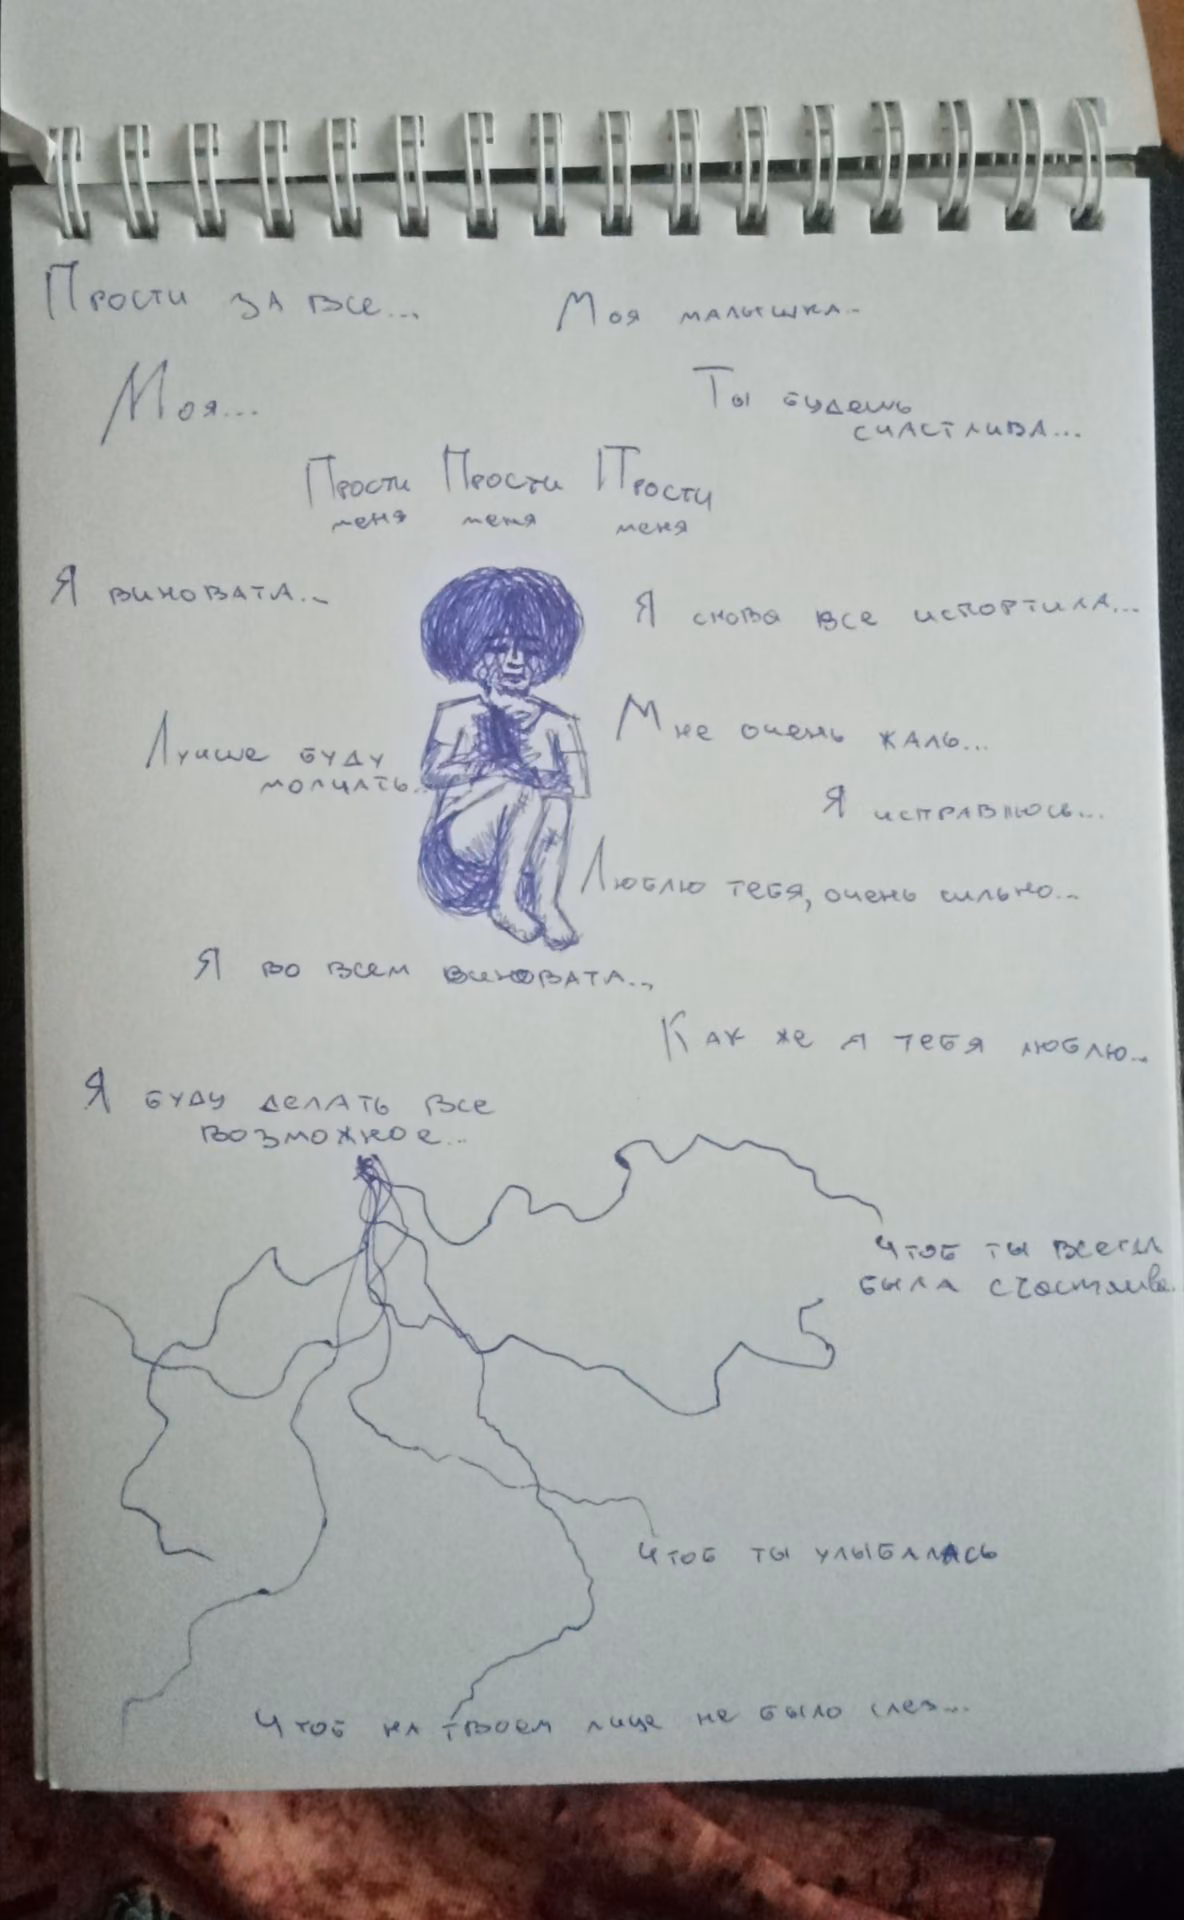 Прости за все...
Моя малышка..
Моя...
Ты будешь
счастлива...
Прости Прости Прости
меня меня меня
Я виновата...
Я снова все испортила...
Лучше буду
молчать..
Мне очень жаль...
Я исправлюсь...
Люблю тебя, очень сильно...
Я во всем виновата...
Как же я тебя люблю...
Я буду делать все
возможное...
Чтоб ты всегда
была счастлива.
Чтоб ты улыбалась
Чтоб на твоем лице не было слез...